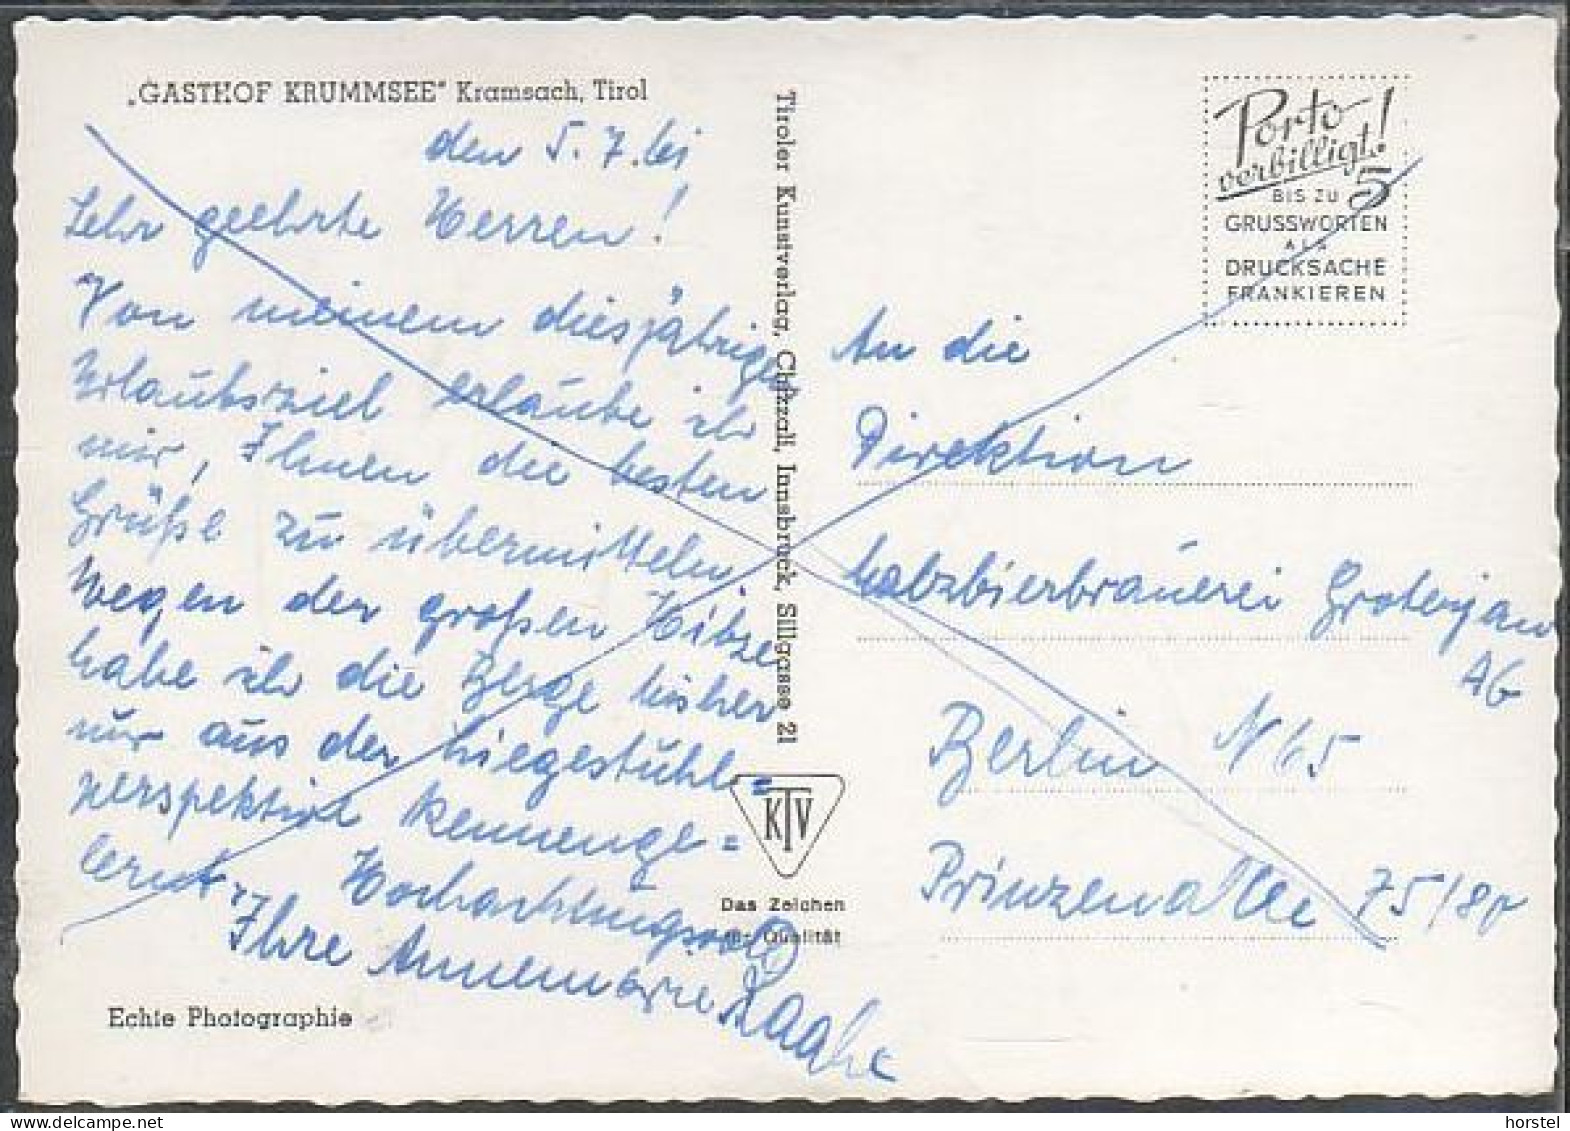 „GASTHOF KRUMMSEE" Kramsach, Tirol
den 5.7.
Sehr geehrte Herren!
Von meinem diesjährigen
Urlaubsziel erlaube ich
mir, Ihnen die besten
Grüße zu übermitteln.
Wegen der großen Hitze
habe ich die Berge bisher
nur aus der Liegestuhl=
perspektive kennenge=
lernt. Hochachtungsvoll
Ihre Annemarie Raabe
Echte Photographie
Tiroler Kunstverlag, Chizzali, Innsbruck, Sillgasse 21
KTV
Das Zeichen
für Qualität
Porto
verbilligt!
BIS ZU 5
GRUSSWORTEN
ALS
DRUCKSACHE
FRANKIEREN
An die
Direktion
Malzbierbrauerei Groterjan
AG
Berlin N 65
Prinzenallee 75/80
horstel